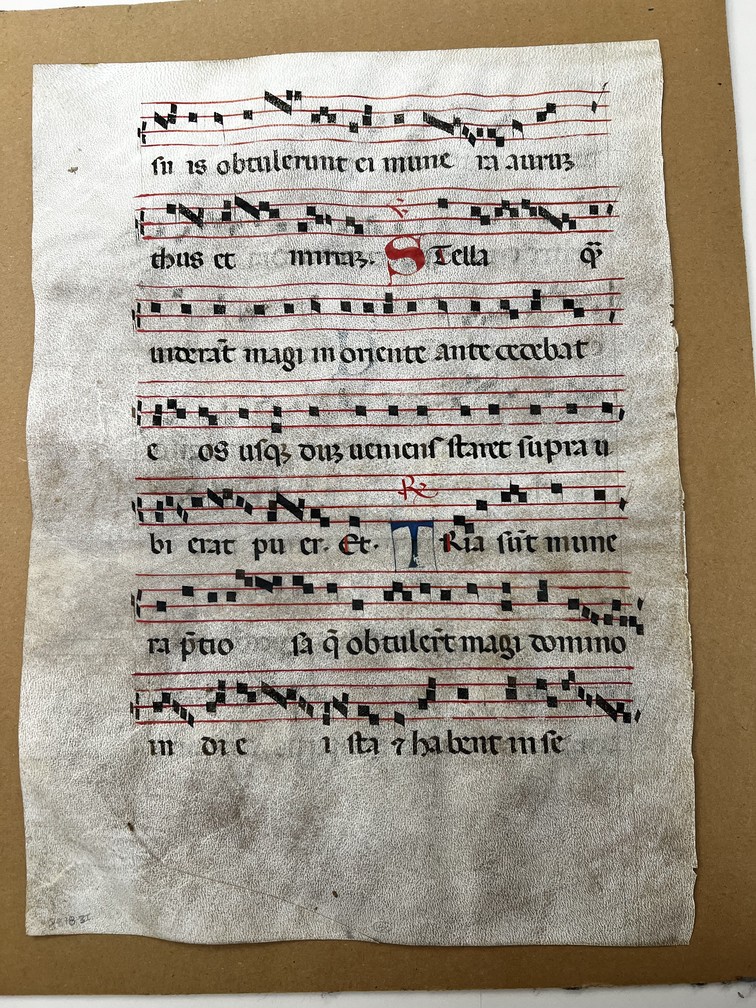 su is obtulerunt ei mune ra auruꝫ
thus et mirraꝫ. ℣ Stella q̄
uiderat̄ magi in oriente antecedebat
e os usqꝫ duꝫ ueniens staret supra u
bi erat pu er. Et. ℟ Tria sūt mune
ra p̄tio sa q̄ obtuler̄t magi domino
in di e i sta ⁊ habent in se